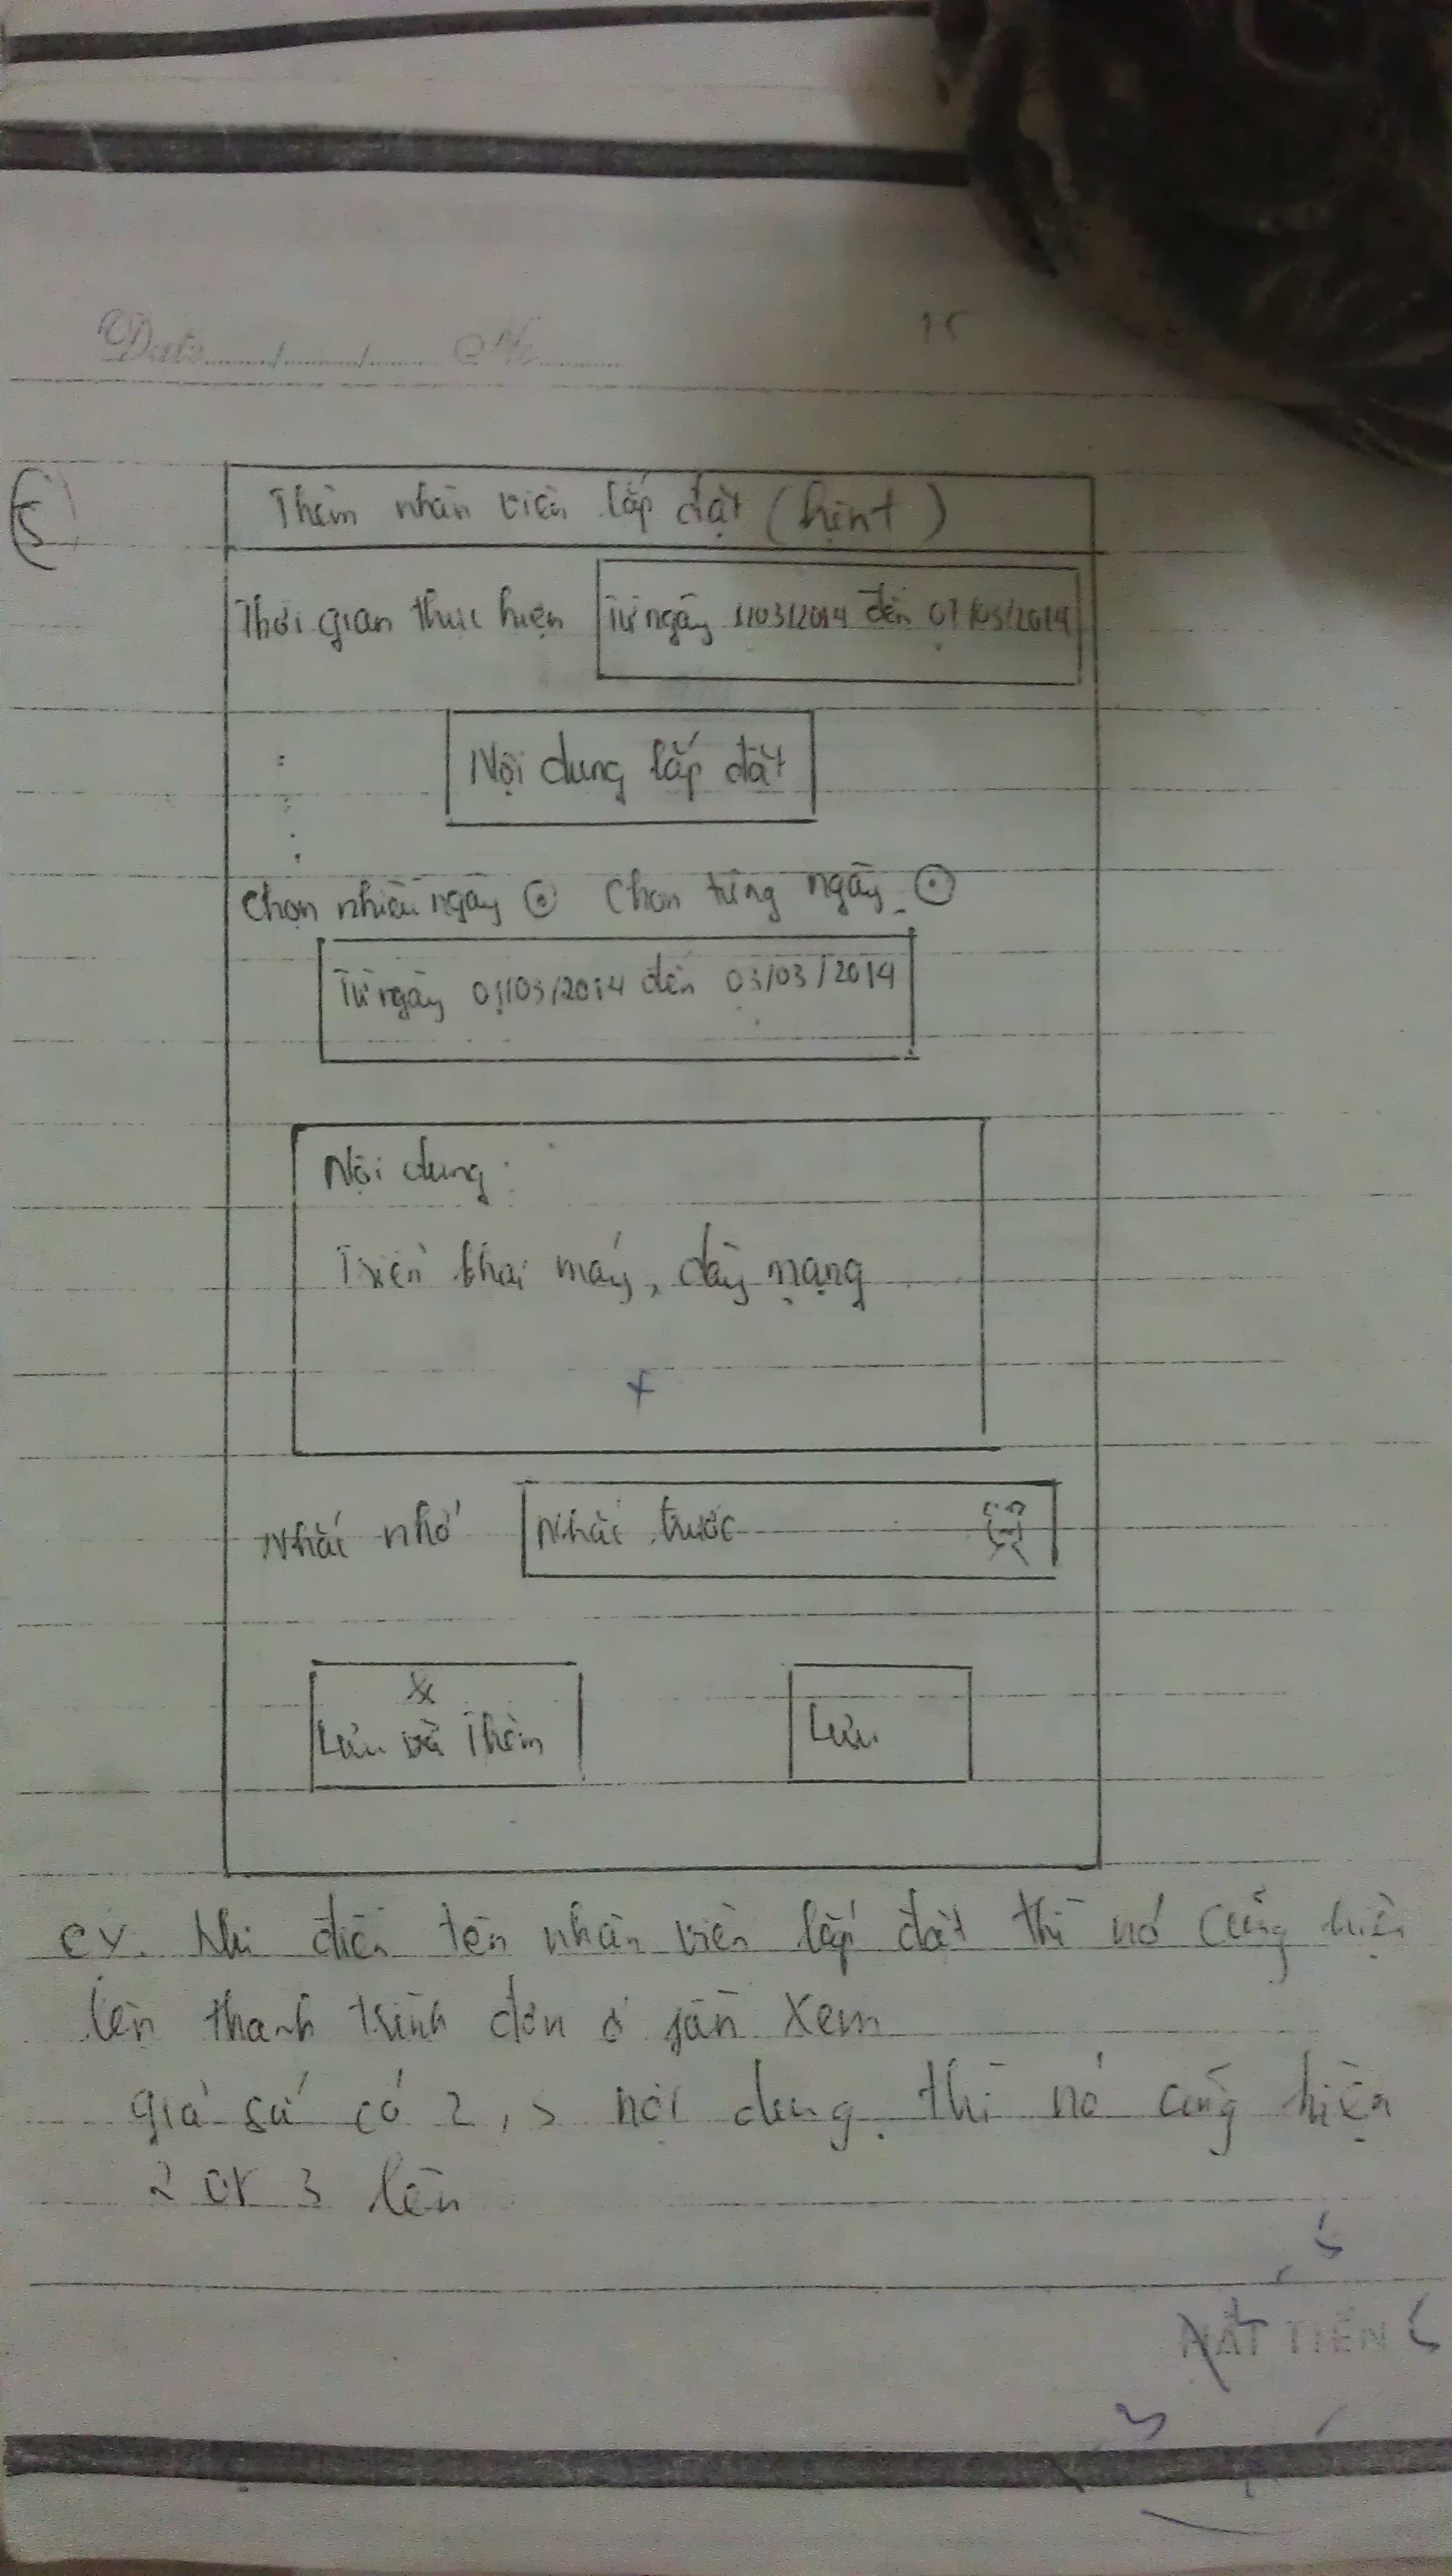 Date ....../....../...... No ........
15
5
Thêm nhân viên lắp đặt (hint)
Thời gian thực hiện Từ ngày 1/03/2014 đến 07/03/2014
Nội dung lắp đặt
Chọn nhiều ngày Chọn từng ngày
Từ ngày 01/03/2014 đến 03/03/2014
Nội dung:
Triển khai máy, dây mạng
+
Nhắc nhở Nhắc trước
Lưu và Thêm Lưu
ex. Khi điền tên nhân viên lắp đặt thì nó cũng hiện
lên thanh trình đơn ở xem
giả sử có 2, 3 nội dung thì nó cũng hiện
2 or 3 lên
NHẤT TIẾN